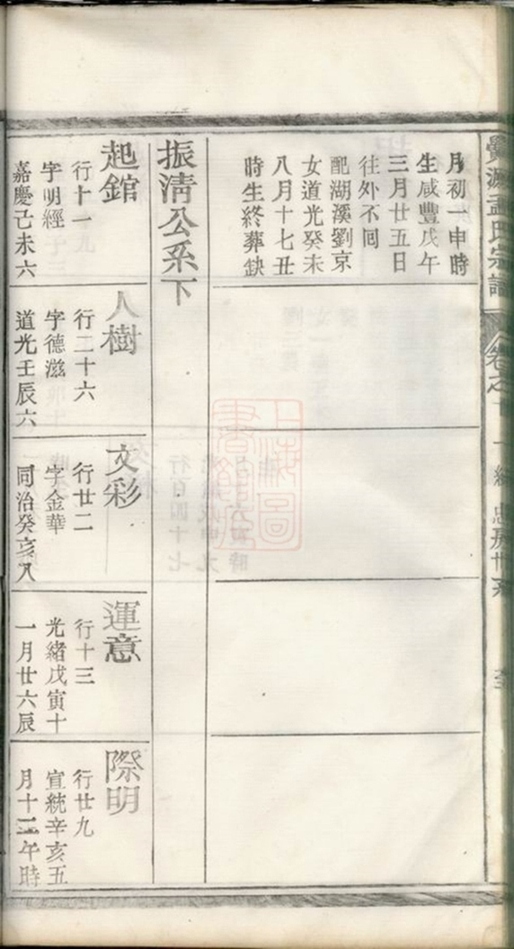 源孟氏宗譜
卷之
月初一申時
生咸豐戊午
三月廿五日
往外不同
配湖溪劉京
女道光癸未
八月十七丑
時生終葬缺
振清公系下
起錧
行十一
字明經
嘉慶己未六
人樹
行二十六
字德滋
道光壬辰六
文彩
行廿二
字金華
同治癸亥八
運意
行十三
光緒戊寅十
一月廿六辰
際明
行廿九
宣統辛亥五
月十二午時